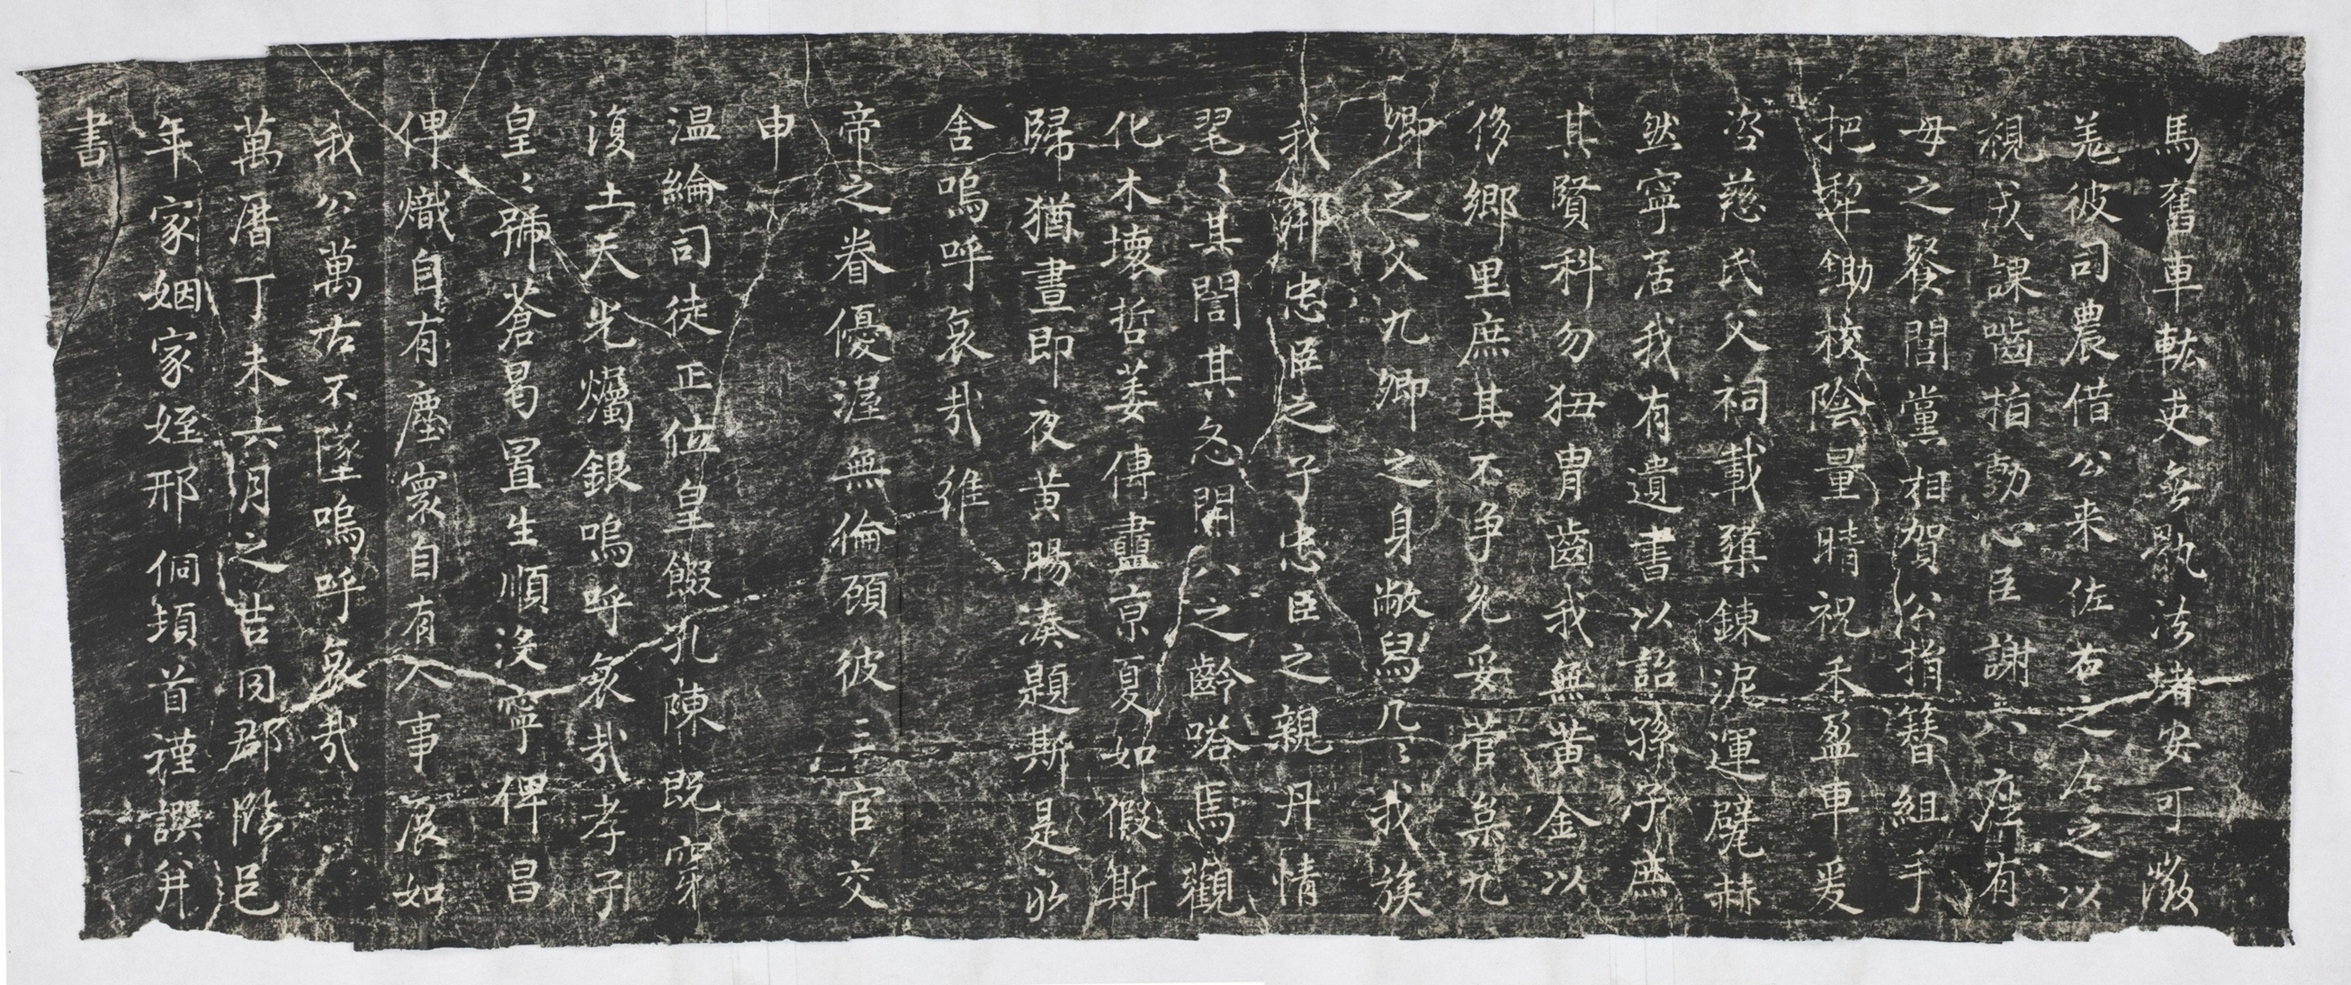 馬奮車軚吏無骩法堵安可徵
羗彼司農借公来佐右之左之以
視戎課嚙指動心臣謝六㾿有
母之餐閭黨相賀公捐簪組手
把犂鋤校陰量晴祝禾盈車爰
咨慈氏父祠載鼛錬泥運甓赫
然寧居我有遺書以詔孫子庶
其賢科勿狃胄齒我無黄金以
侈鄉里庶其不争允妥菅枲九
卿之父九卿之身敝舄几〻我族
我鄰忠臣之子忠臣之親丹情
翼〻其誾其
化木壞哲萎傳盡亰夏如假斯
歸猶晝即夜黄腸湊題斯是永
舍嗚呼哀哉維
帝之眷優渥無倫碩彼三官交
申
温綸司徒正位皇餟孔陳既穿
復土天光爥銀嗚呼哀哉孝子
皇〻號蒼曷置生順没寧俾昌
俾熾自有塵寰自有人事展如
我公萬古不墜嗚呼哀哉
萬曆丁未六月之吉同郡臨邑
年家姻家姪邢侗頓首謹譔并
書